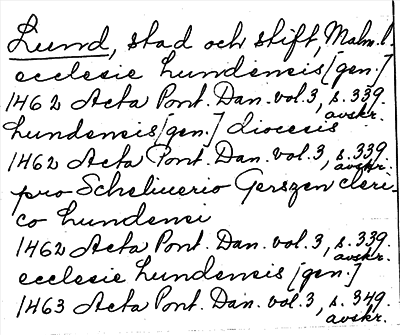 Lund, stad och stift, Malm.l.
ecclesie lundensis [gen.]
1462 Acta Pont. Dan. vol. 3, s. 339.
avskr.
lundensis [gen.] diocesis
1462 Acta Pont. Dan. vol. 3, s. 339.
avskr.
pro Schelinerio Gerszen cleri-
co lundensi
1462 Acta Pont. Dan. vol. 3, s. 339.
avskr.
ecclesie lundensis [gen.]
1463 Acta Pont. Dan. vol. 3, s. 349.
avskr.